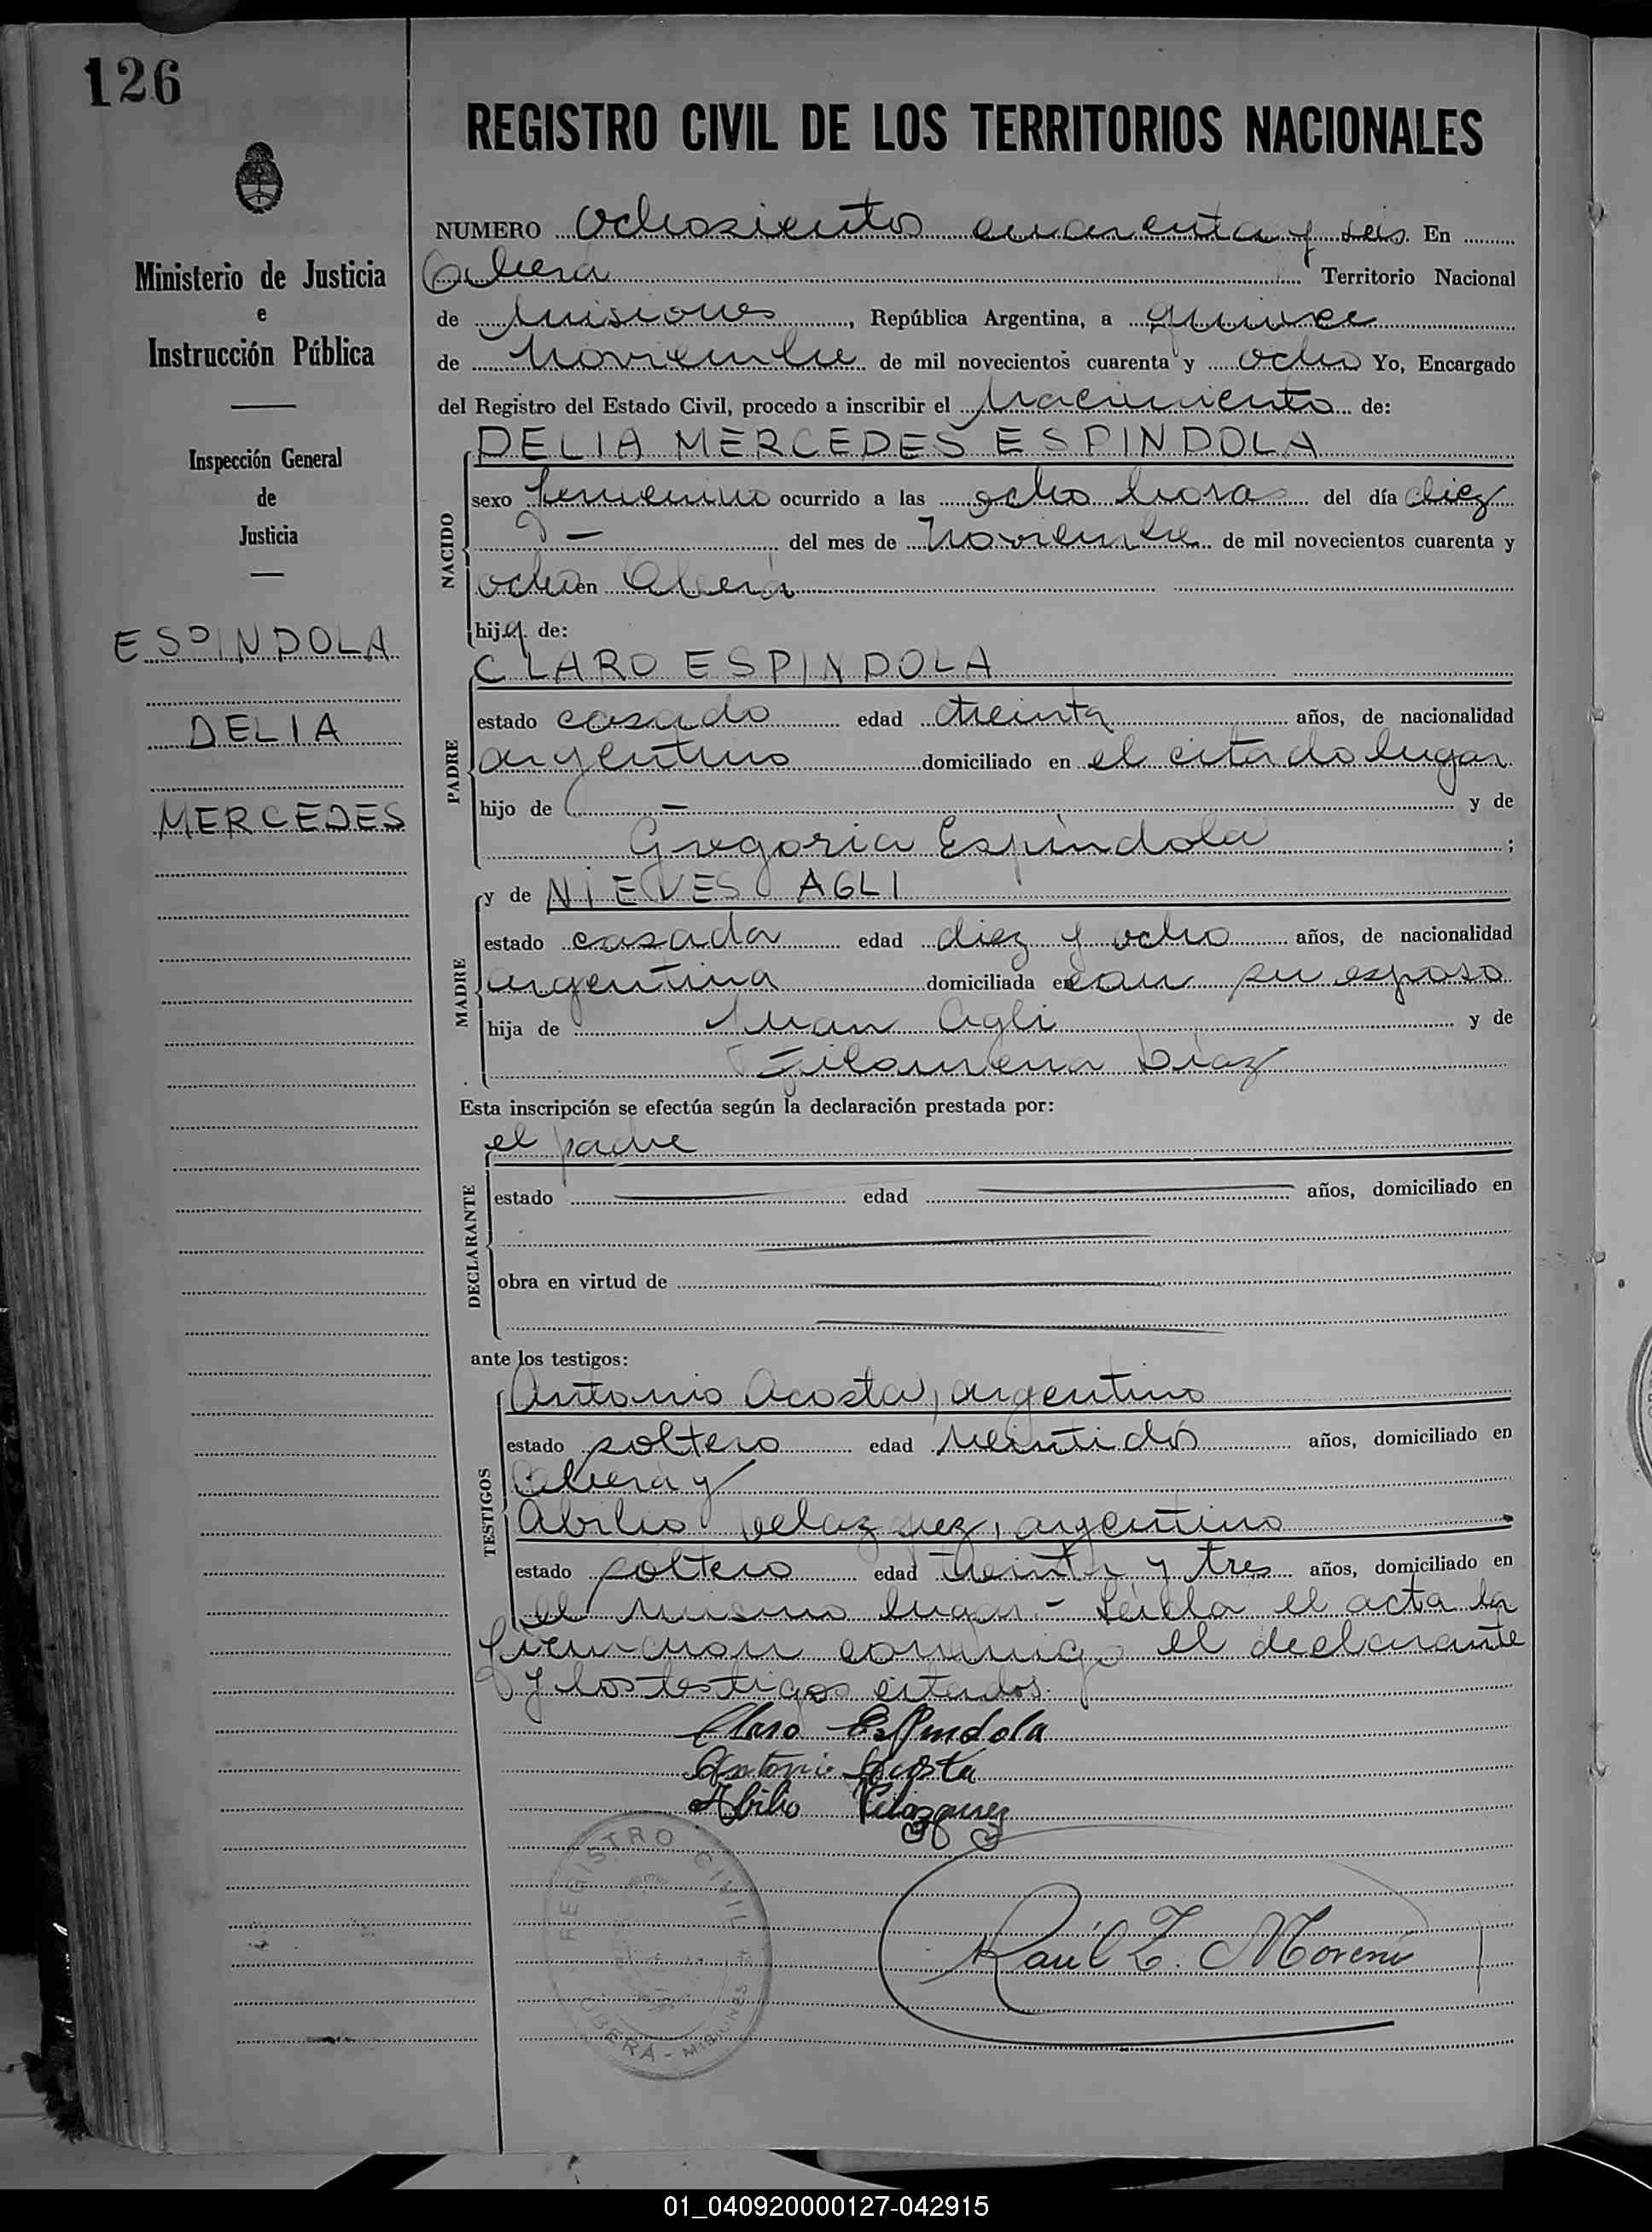 126
REGISTRO CIVIL DE LOS TERRITORIOS NACIONALES
Ministerio de Justicia
e
Instrucción Pública
Inspección General
de
Justicia
ESPINDOLA
DELIA
MERCEDES
NUMERO Ochosientos cuarenta y seis. En
Oberá Territorio Nacional
de Misiones, República Argentina, a quince
de Noviembre de mil novecientos cuarenta y ocho Yo, Encargado
del Registro del Estado Civil, procedo a inscribir el Nacimiento de:
NACIDO
DELIA MERCEDES ESPINDOLA
sexo femenino ocurrido a las ocho horas del día diez
— del mes de Noviembre de mil novecientos cuarenta y
ocho en Oberá
hija de:
PADRE
CLARO ESPINDOLA
estado casado edad treinta años, de nacionalidad
argentino domiciliado en el citado lugar
hijo de — y de
Gregoria Espíndola ;
MADRE
y de NIEVES AGLI
estado casada edad diez y ocho años, de nacionalidad
argentina domiciliada en con su esposo
hija de Juan Agli y de
Filomena Diaz
Esta inscripción se efectúa según la declaración prestada por:
DECLARANTE
el padre
estado edad años, domiciliado en
obra en virtud de
ante los testigos:
TESTIGOS
Antonio Acosta, argentino
estado soltero edad veintidós años, domiciliado en
Oberá y
Abilio Velazquez, argentino
estado soltero edad treinta y tres años, domiciliado en
el mismo lugar.- Leída el acta la
firmaron conmigo el declarante
y los testigos citados.
Claro Espindola
Antonio Acosta
Abilio Velazquez
Raúl Z. Moreno
REGISTRO CIVIL
OBERA - MISIONES
01_040920000127-042915